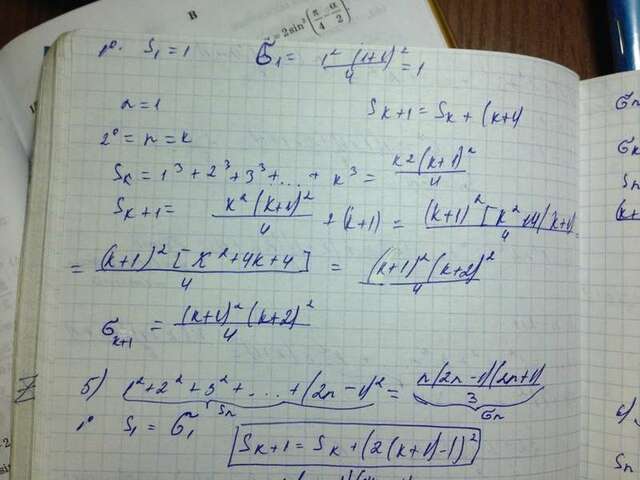 B
= 2sin²(π/4 − α/2)
1°. S₁ = 1 σ₁ = 1²(1+1)²/4 = 1
n = 1 Sₖ₊₁ = Sₖ + (k+1)
2° = n = k
Sₖ = 1³ + 2³ + 3³ + ... + k³ = k2(k+1)²/4
Sₖ₊₁ = k²(k+1)²/4 + (k+1) = (k+1)²[k²+4(k+1)/4
= (k+1)²[k²+4k+4]/4 = (k+1)²(k+2)²/4
σₖ₊₁ = (k+1)²(k+2)²/4
б) 1² + 2² + 3² + ... + (2n−1)² = n(2n−1)(2n+1)/3
Sn σn
1° S₁ = σ₁ Sₖ₊₁ = Sₖ + (2(k+1)−1)²